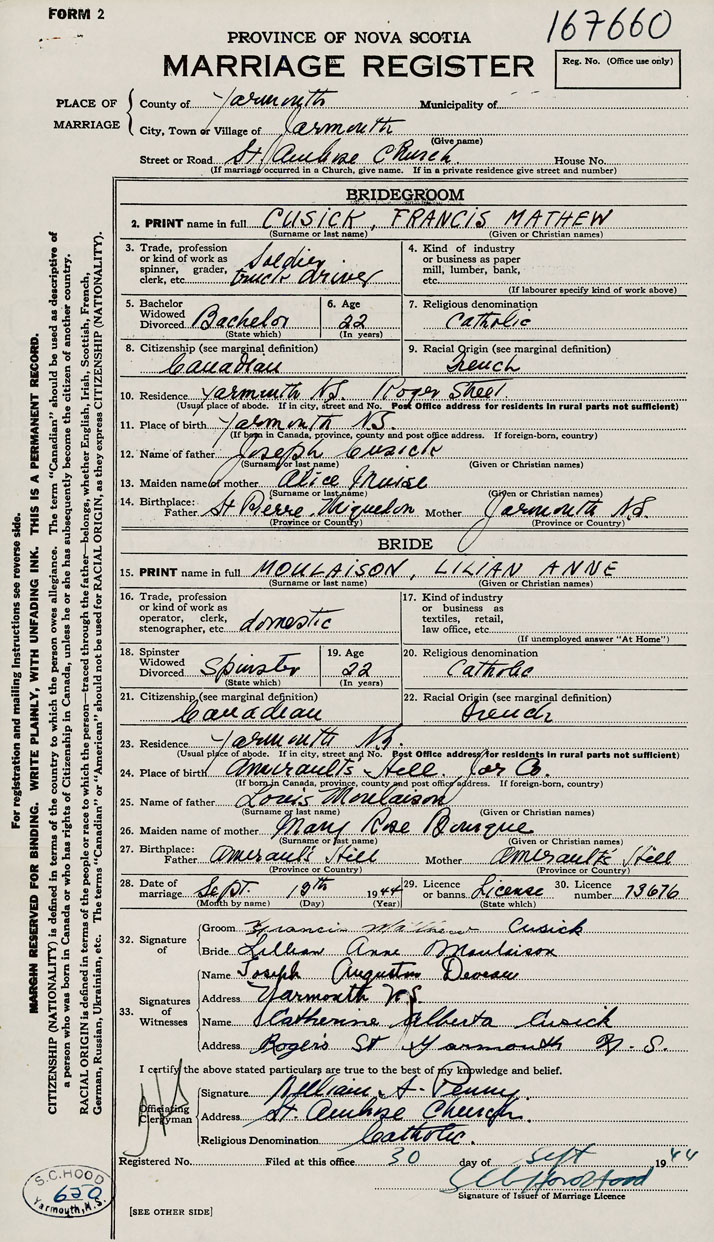 FORM 2
167660
PROVINCE OF NOVA SCOTIA
MARRIAGE REGISTER
Reg. No. (Office use only)
PLACE OF MARRIAGE
County of Yarmouth Municipality of
City, Town or Village of Yarmouth
(Give name)
Street or Road St. Ambrose Church House No.
(If marriage occurred in a Church, give name. If in a private residence give street and number)
BRIDEGROOM
2. PRINT name in full CUSICK, FRANCIS MATHEW
(Surname or last name) (Given or Christian names)
3. Trade, profession or kind of work as spinner, grader, clerk, etc. Soldier truck driver
4. Kind of industry or business as paper mill, lumber, bank, etc.
(If labourer specify kind of work above)
5. Bachelor Widowed Divorced Bachelor
(State which)
6. Age 22
(In years)
7. Religious denomination Catholic
8. Citizenship (see marginal definition) Canadian
9. Racial Origin (see marginal definition) French
10. Residence Yarmouth N.S. Roger Street
(Usual place of abode. If in city, street and No. Post Office address for residents in rural parts not sufficient)
11. Place of birth Yarmouth N.S.
(If born in Canada, province, county and post office address. If foreign-born, country)
12. Name of father Joseph Cusick
(Surname or last name) (Given or Christian names)
13. Maiden name of mother Alice
(Surname or last name) (Given or Christian names)
14. Birthplace: Father St Pierre Miquelon Mother Yarmouth N.S.
(Province or Country) (Province or Country)
BRIDE
15. PRINT name in full MOULAISON, LILIAN ANNE
(Surname or last name) (Given or Christian names)
16. Trade, profession or kind of work as operator, clerk, stenographer, etc. domestic
17. Kind of industry or business as textiles, retail, law office, etc.
(If unemployed answer "At Home")
18. Spinster Widowed Divorced Spinster
(State which)
19. Age 22
(In years)
20. Religious denomination Catholic
21. Citizenship (see marginal definition) Canadian
22. Racial Origin (see marginal definition) French
23. Residence Yarmouth N.S.
(Usual place of abode. If in city, street and No. Post Office address for residents in rural parts not sufficient)
24. Place of birth Amirault's Hill Yar Co.
(If born in Canada, province, county and post office address. If foreign-born, country)
25. Name of father Louis Moulaison
(Surname or last name) (Given or Christian names)
26. Maiden name of mother Mary Rose Bourque
(Surname or last name) (Given or Christian names)
27. Birthplace: Father Amirault's Hill Mother Amirault's Hill
(Province or Country) (Province or Country)
28. Date of marriage Sept. 19th 1944
(Month by name) (Day) (Year)
29. Licence or banns License
(State which)
30. Licence number 73676
32. Signature of
Groom Francis Mathew Cusick
Bride Lillian Anne Moulaison
33. Signatures of Witnesses
Name Joseph Augustus Deveau
Address Yarmouth N.S.
Name Catherine Alberta Cusick
Address Rogers St Yarmouth N.S.
I certify the above stated particulars are true to the best of my knowledge and belief.
Officiating Clergyman
Signature William A. Penny
Address St. Ambrose Church
Religious Denomination Catholic.
Registered No. Filed at this office 30 day of Sept 1944
Signature of Issuer of Marriage Licence
[SEE OTHER SIDE]
S.C. HOOD
650
Yarmouth, N.S.
For registration and mailing instructions see reverse side.
MARGIN RESERVED FOR BINDING. WRITE PLAINLY, WITH UNFADING INK. THIS IS A PERMANENT RECORD.
CITIZENSHIP (NATIONALITY) is defined in terms of the country to which the person owes allegiance. The term "Canadian" should be used as descriptive of
a person who was born in Canada or who has rights of Citizenship in Canada, unless he or she has subsequently become the citizen of another country.
RACIAL ORIGIN is defined in terms of the people or race to which the person—traced through the father—belongs, whether English, Irish, Scottish, French,
German, Russian, Ukrainian, etc. The terms "Canadian" or "American" should not be used for RACIAL ORIGIN, as they express CITIZENSHIP (NATIONALITY).